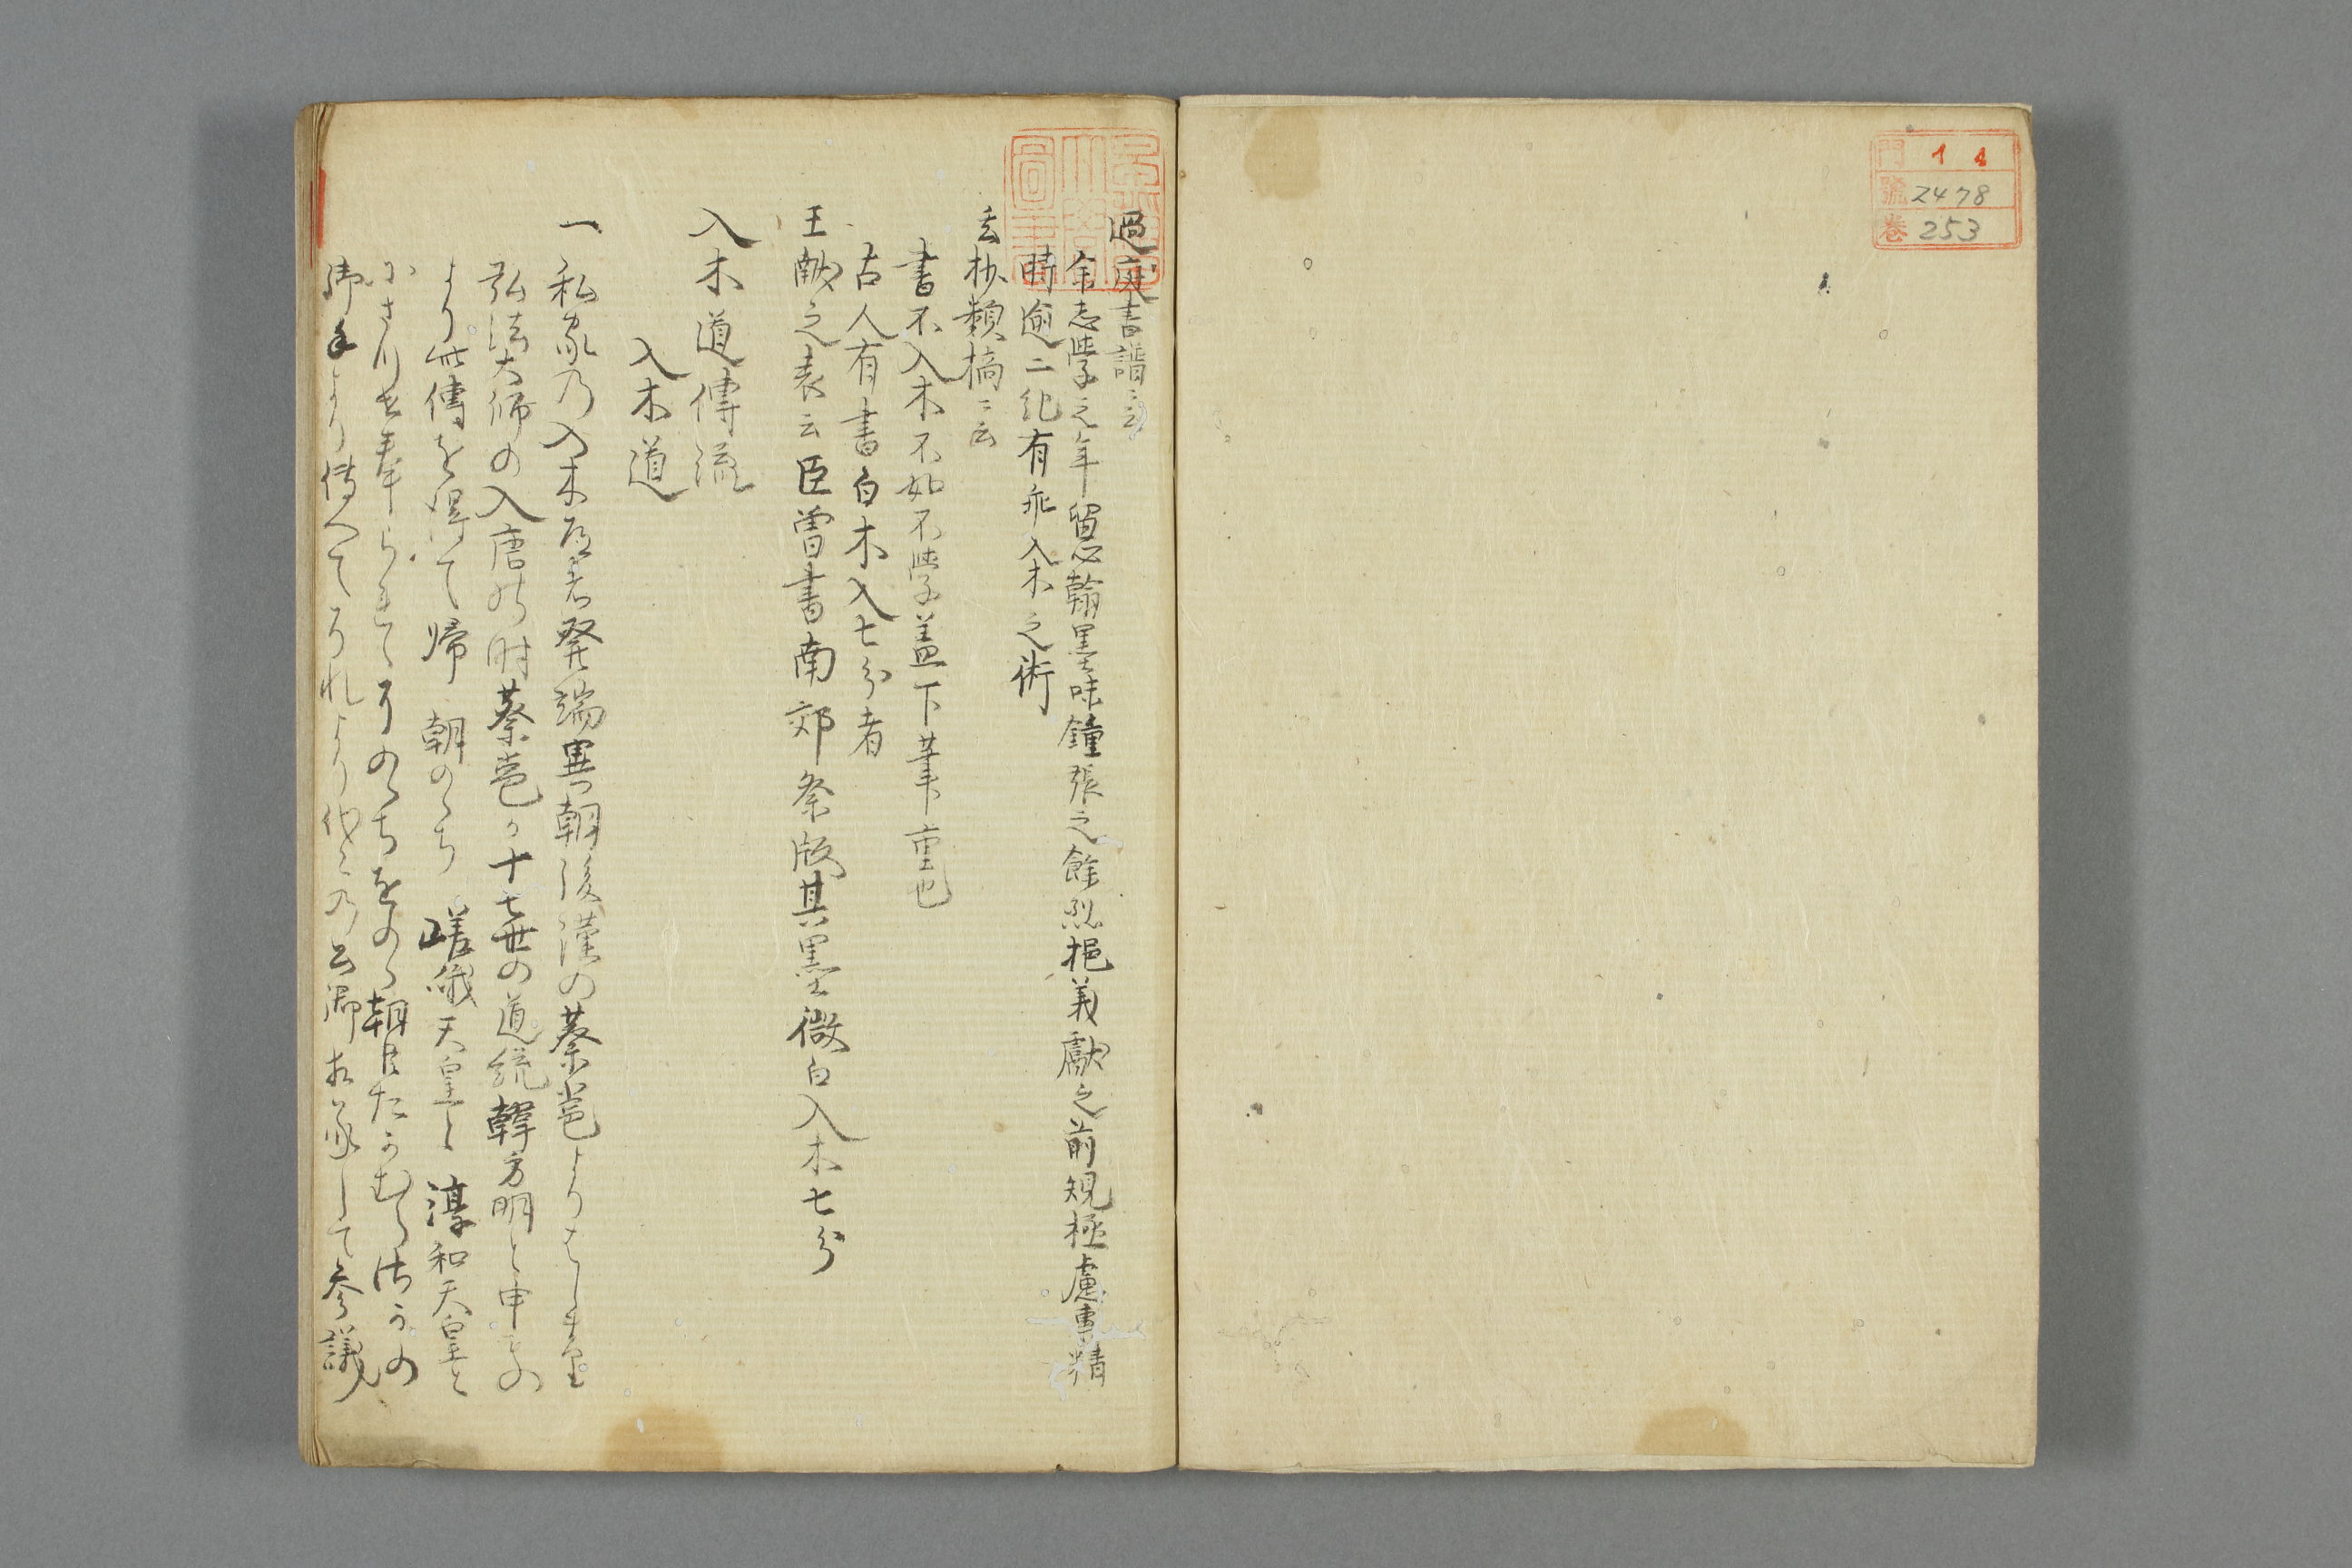 門 11
號 2478
巻 253
過庭書譜ニ云
余志學之年留心翰墨味鍾張之餘烈挹羲獻之前規極慮專精
時逾二紀有乖入木之術
玄抄類摘ニ云
書不入木不如不學盖下筆重也
古人有書白木入七分者
王獻之表云臣曽書南郊祭版其墨微白入木七分
入木道傳流
入木道
一私家乃入木道者発端異朝後漢の蔡邕より
弘法大師の入唐の时蔡邕ゟ十七世の道統韓方明と申ものゝ
より此傳を得て帰朝のゝち嵯峨天皇と淳和天皇と
にさつけ奉らせてそのゝちをのゝ朝臣たかむら
御手より傳へてそれより代々乃公卿相承して参議